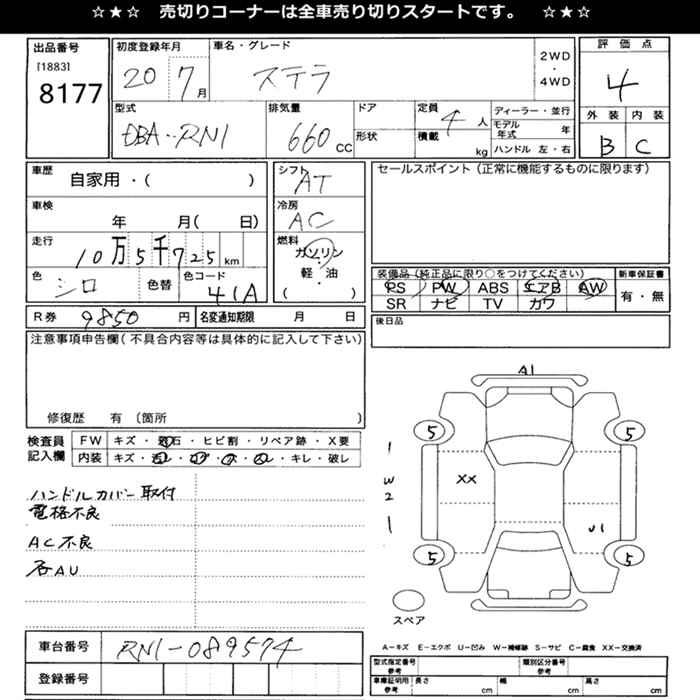 ☆★☆ 売切りコーナーは全車売り切りスタートです。 ☆★☆
出品番号
[1883]
8177
初度登録年月
20 7月
車名・グレード
ステラ
2WD
・
4WD
評価点
4
外装 内装
B C
型式
DBA-RN1
排気量
660 CC
ドア
形状
定員
4 人
積載
kg
ディーラー・並行
モデル年式 年
ハンドル 左・右
車歴
自家用・( )
車検
年 月( 日)
走行
10万5千725km
色
シロ
色替
色コード
41A
シフト
AT
冷房
AC
燃料
ガソリン
・
軽・油
( )
セールスポイント(正常に機能するものに限ります)
装備品(純正品に限り○をつけてください)
PS PW ABS エアB AW
SR ナビ TV カワ
新車保証書
有・無
R券 9850 円
名変通知期限 月 日
後日品
注意事項申告欄(不具合内容等は具体的に記入して下さい)
修復歴 有 (箇所 )
検査員
記入欄
FW キズ・飛石・ヒビ割・リペア跡・X要
内装 キズ・ ・キレ・破レ
ハンドルカバー取付
電格不良
AC不良
A1
5 5
1
W2
1
XX
U1
5 5
スペア
車台番号
RN1-089574
登録番号
A―キズ E―エクボ U―凹み W―補修跡 S―サビ C―腐食 XX―交換済
型式指定番号
参考
類別区分番号
参考
車庫証明用
参考
長さ cm 幅 cm 高さ cm